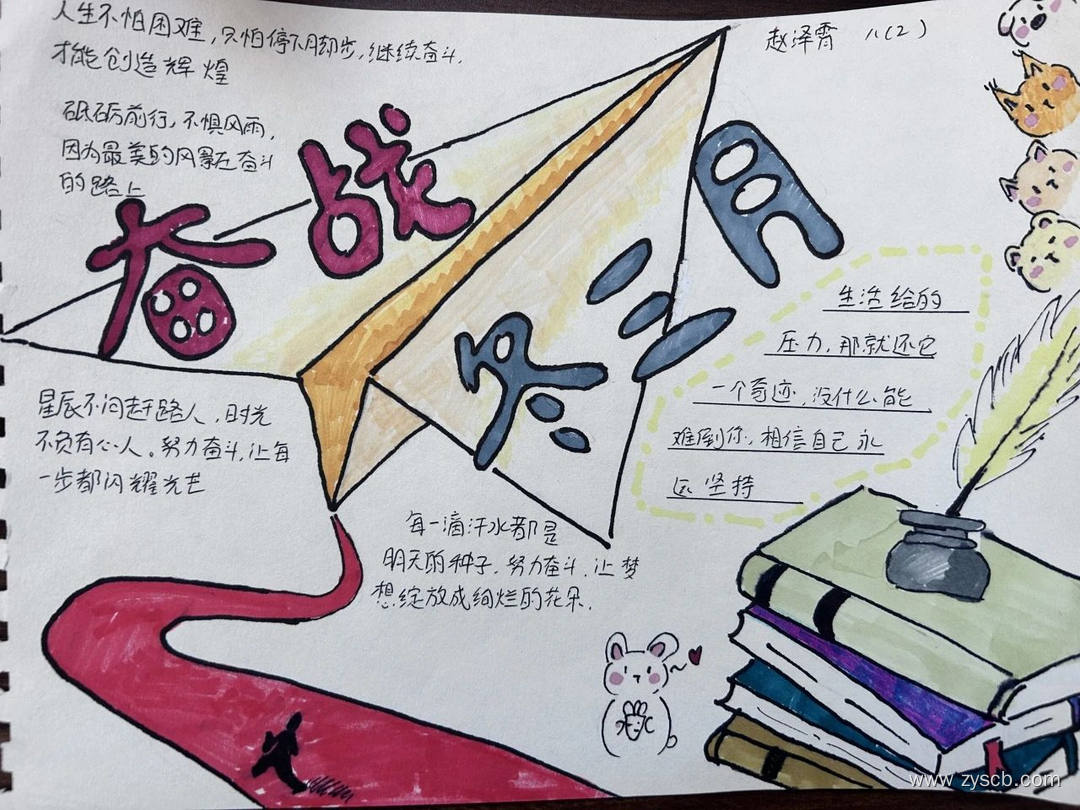 人生不怕困难，只怕停下脚步，继续奋斗，
才能创造辉煌
赵泽霄 八(2)
砥砺前行，不惧风雨，
因为最美的风景在奋斗
的路上
奋战
冬三月
生活给的
压力，那就还它
一个奇迹，没什么能
难倒你，相信自己永
远坚持
星辰不问赶路人，时光
不负有心人。努力奋斗，让每
一步都闪耀光芒
每一滴汗水都是
明天的种子，努力奋斗，让梦
想绽放成绚烂的花朵，
www.zyscb.com